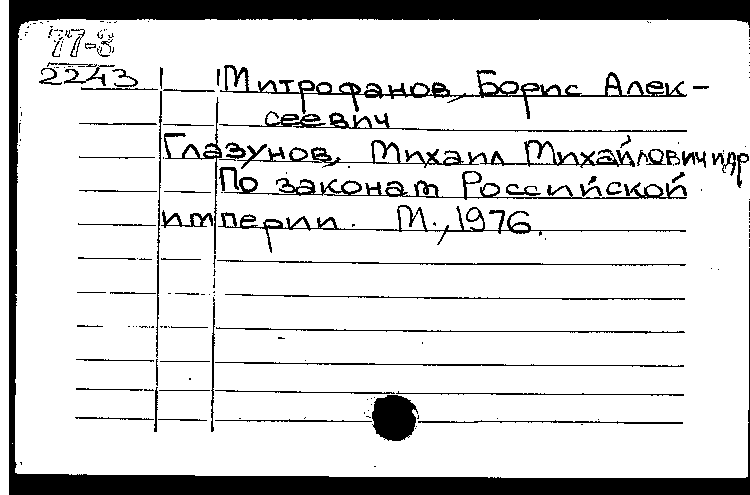 77-8
2243
Митрофанов, Борис Алек-
сеевич
Глазунов, Михаил Михайлович и др
По законам Российской
империи. М., 1976.